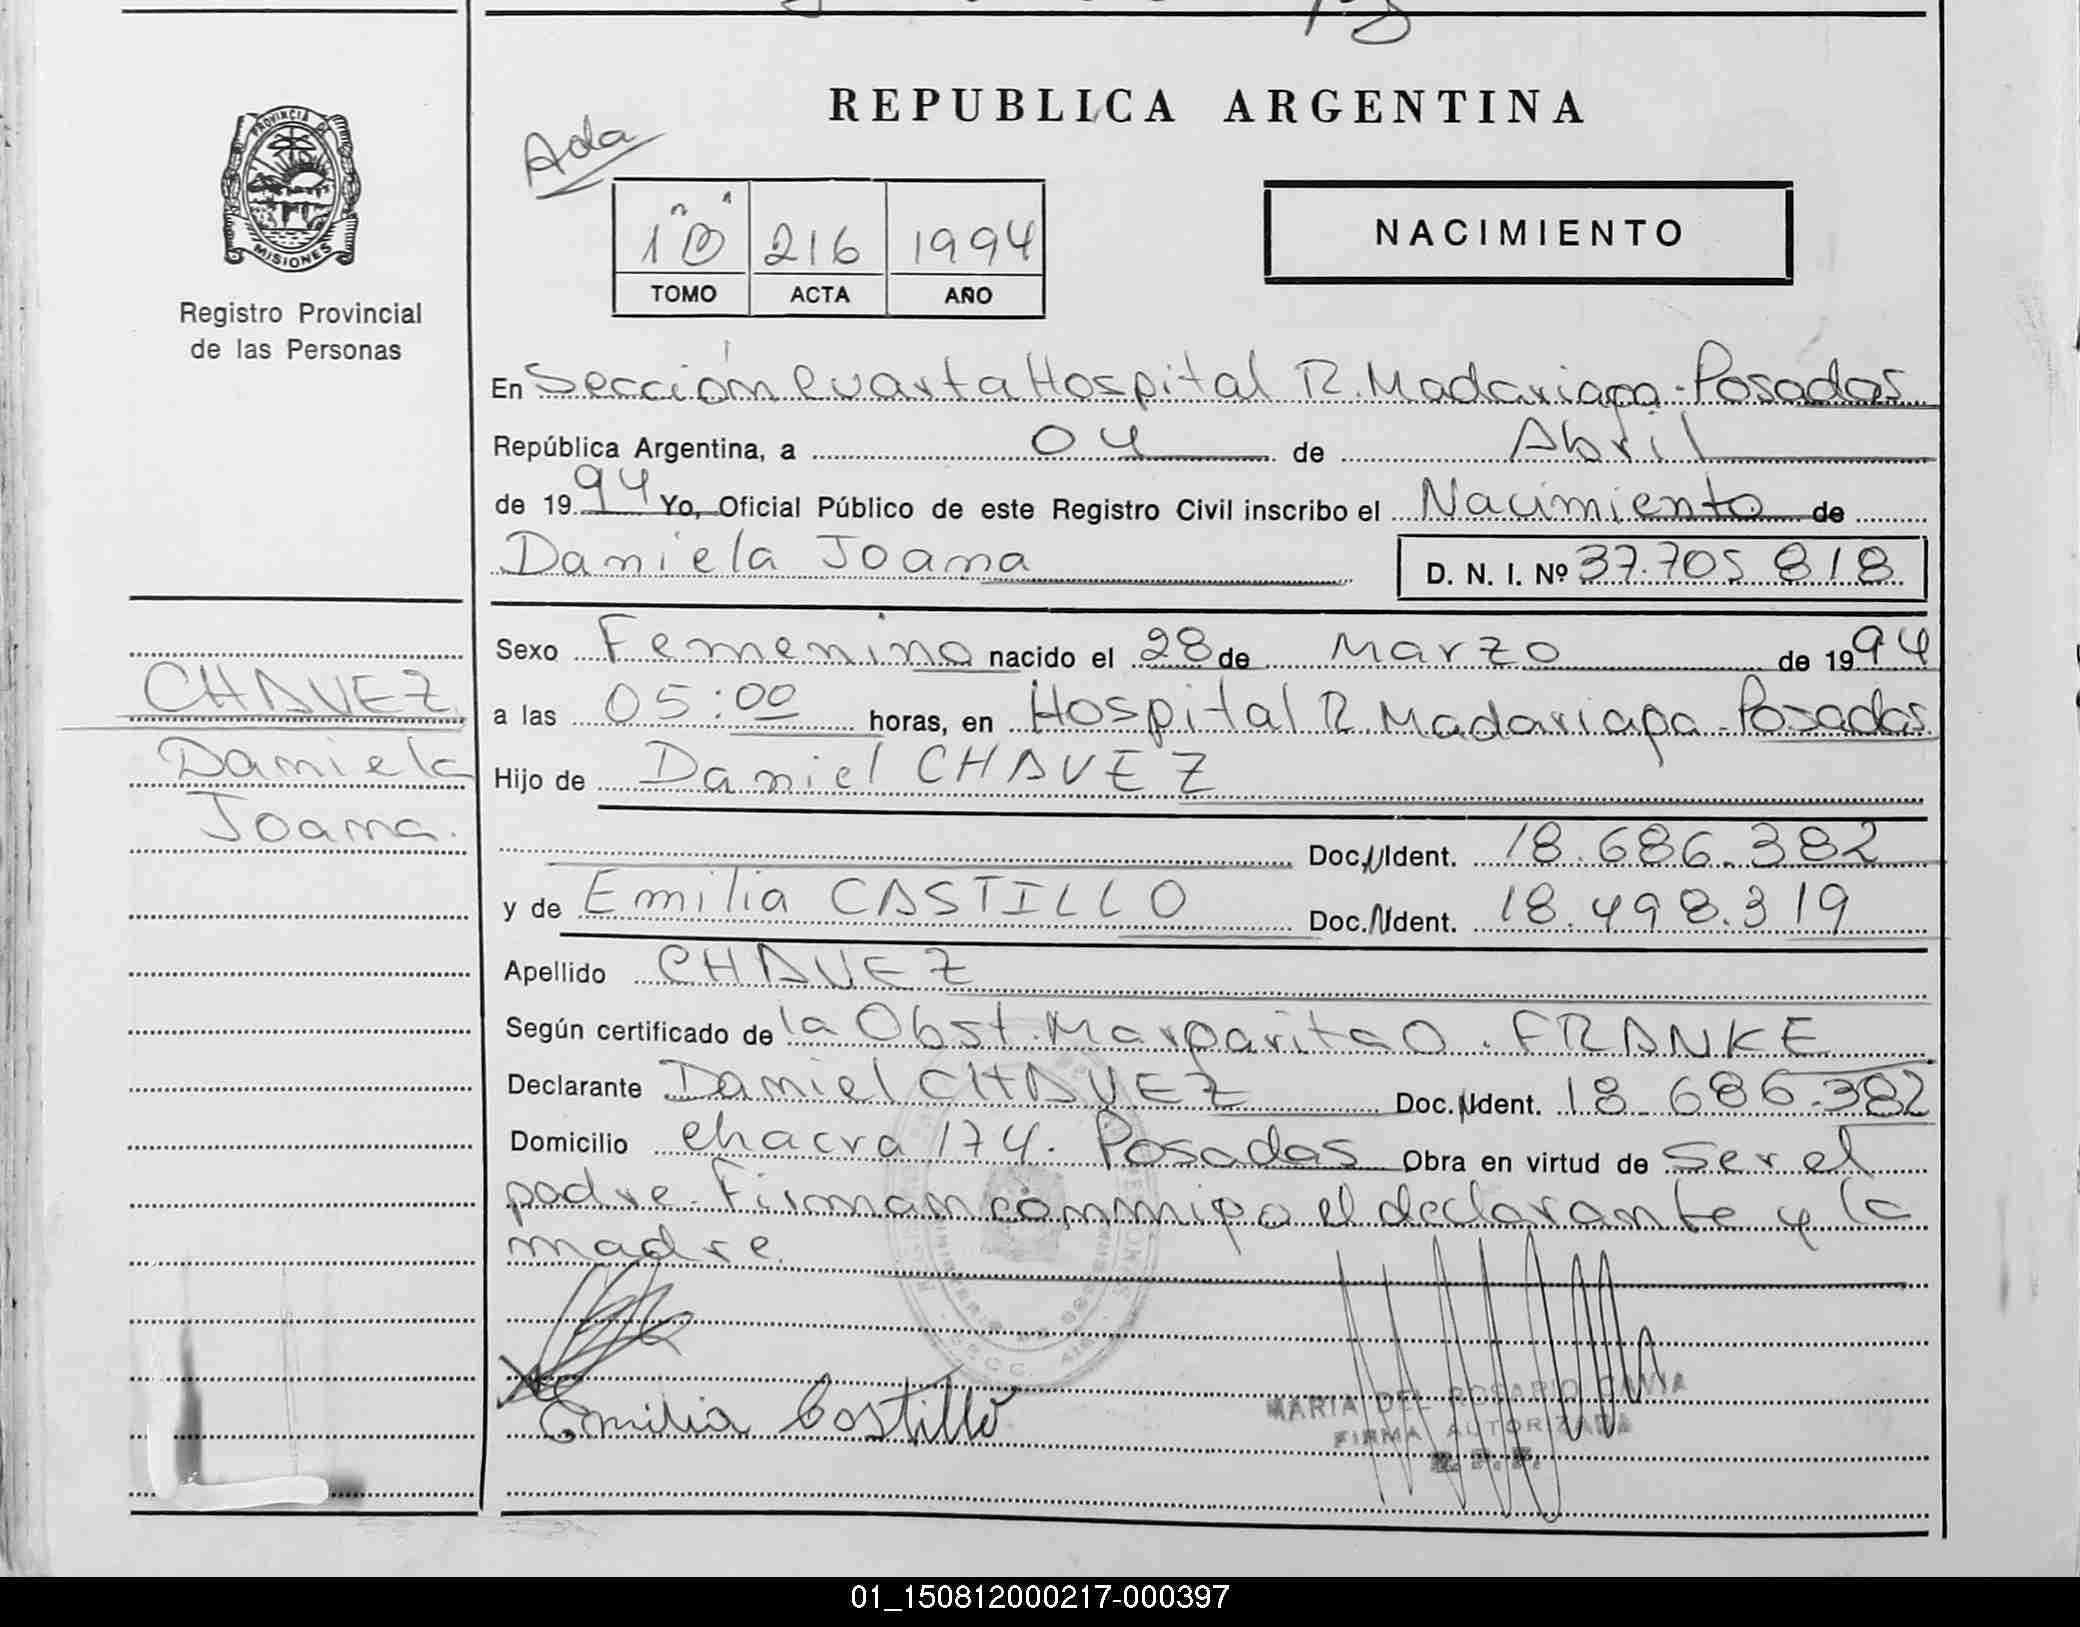 REPUBLICA ARGENTINA
Ada
1º B 216 1994
TOMO ACTA AÑO
NACIMIENTO
PROVINCIA DE MISIONES
Registro Provincial
de las Personas
En Sección Cuarta Hospital R. Madariaga - Posadas
República Argentina, a 04 de Abril
de 1994 Yo, Oficial Público de este Registro Civil inscribo el Nacimiento de
Daniela Joana D. N. I. Nº 37.705 818
Sexo Femenino nacido el 28 de Marzo de 1994
a las 05:00 horas, en Hospital R. Madariaga - Posadas
Hijo de Daniel CHAVEZ
Doc. Ident. 18.686.382
y de Emilia CASTILLO Doc. Ident. 18.498.319
Apellido CHAVEZ
Según certificado de la Obst. Margarita O. FRANKE
Declarante Daniel CHAVEZ Doc. Ident. 18.686.382
Domicilio chacra 174. Posadas Obra en virtud de Ser el
padre. Firman conmigo el declarante y la
madre.
Emilia Castillo
MARIA DEL ROSARIO
FIRMA AUTORIZADA
CHAVEZ
Daniela
Joana.
01_150812000217-000397